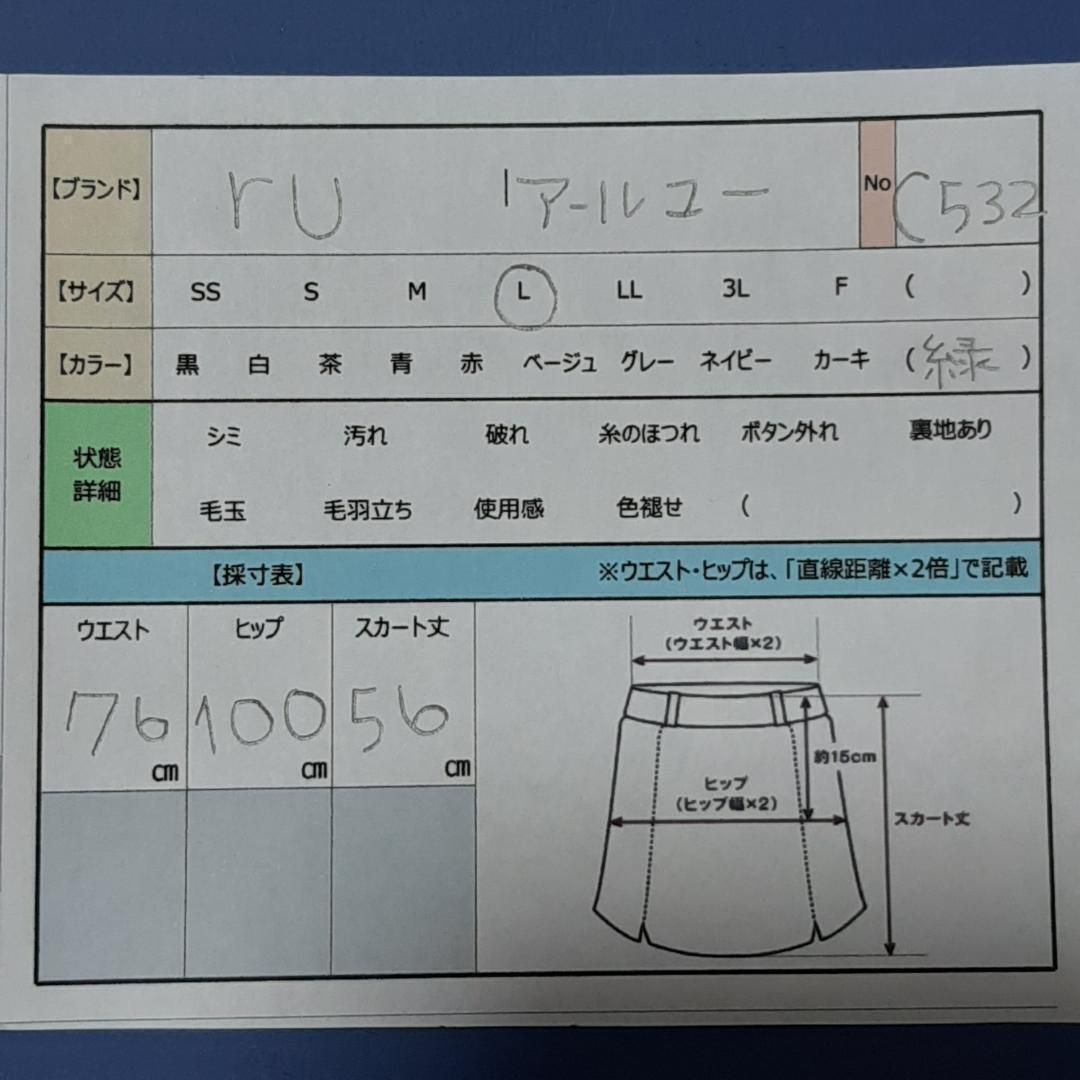 【ブランド】 rU アールユー No C532
【サイズ】 SS S M L LL 3L F ( )
【カラー】 黒 白 茶 青 赤 ベージュ グレー ネイビー カーキ (緑)
状態
詳細
シミ 汚れ 破れ 糸のほつれ ボタン外れ 裏地あり
毛玉 毛羽立ち 使用感 色褪せ ( )
【採寸表】 ※ウエスト・ヒップは、「直線距離×2倍」で記載
ウエスト ヒップ スカート丈
76cm 100cm 56cm
ウエスト
(ウエスト幅×2)
約15cm
ヒップ
(ヒップ幅×2)
スカート丈